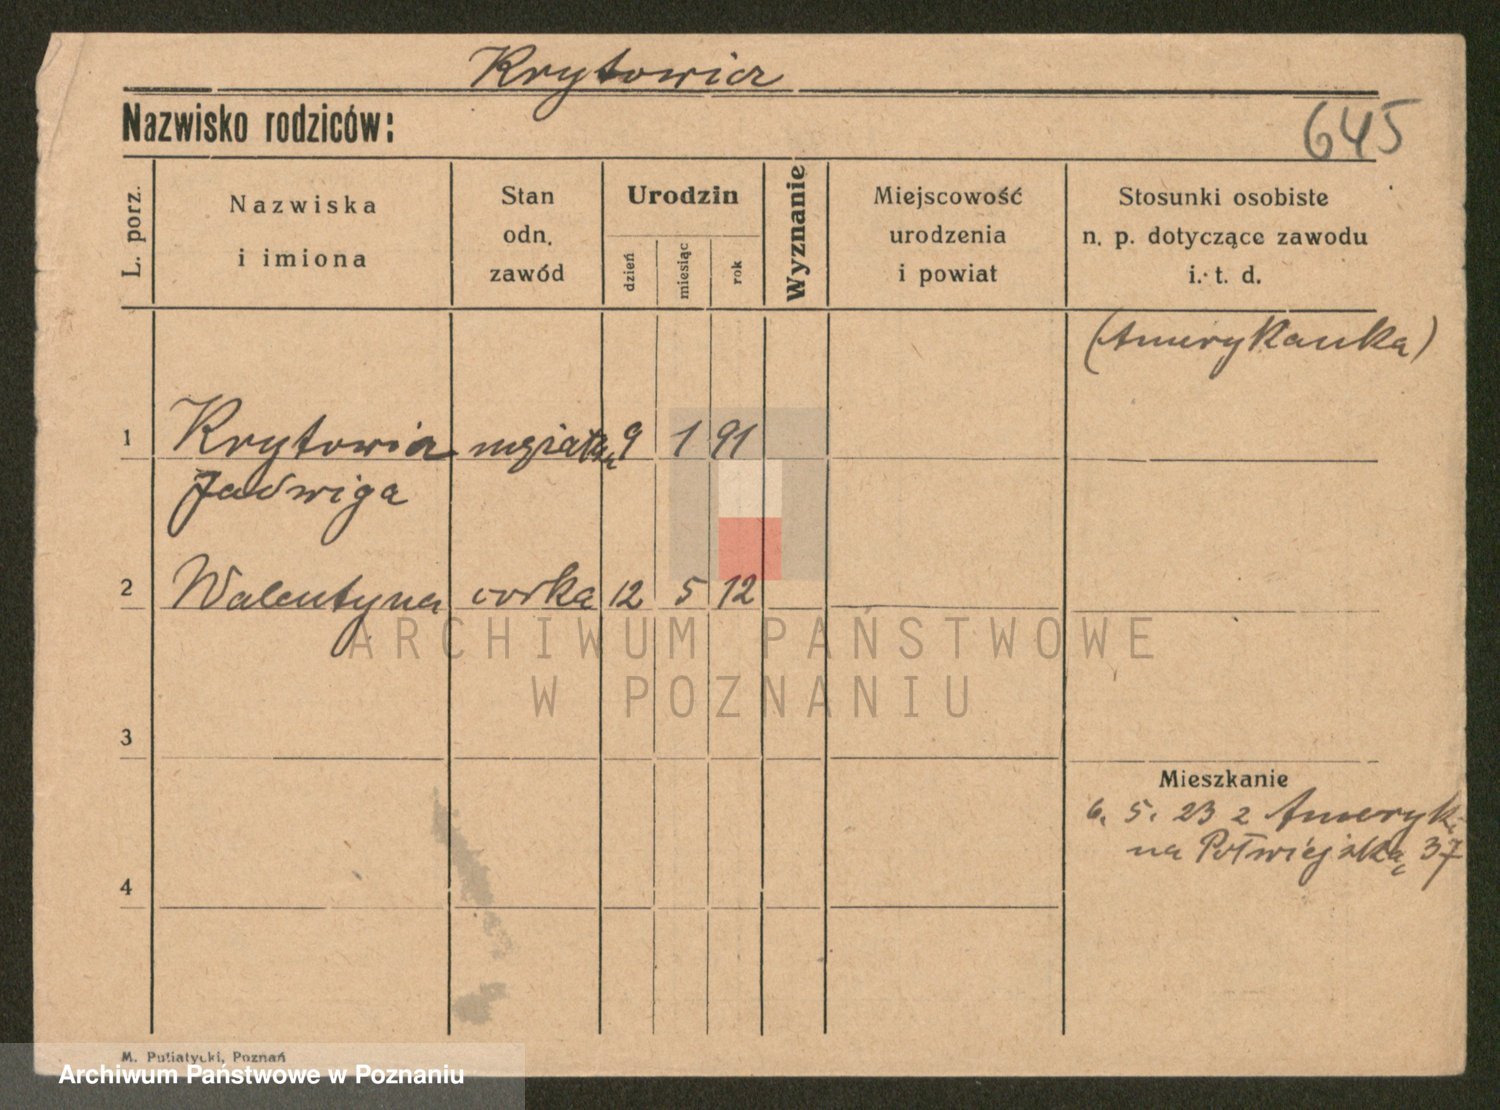 Krytowia
Nazwisko rodziców:
645
L. porz.
Nazwiska
i imiona
Stan
odn.
zawód
Urodzin
dzień
miesiąc
rok
Wyznanie
Miejscowość
urodzenia
i powiat
Stosunki osobiste
n. p. dotyczące zawodu
i. t. d.
(Amerykanka)
1 Krytowia 9 1 91
Jadwiga
2 Walentyna corka 12 5 12
ARCHIWUM PAŃSTWOWE
W POZNANIU
3
Mieszkanie
6. 5. 23 z Ameryki
na Półwiejską 37
4
M. Putiatycki, Poznań
Archiwum Państwowe w Poznaniu